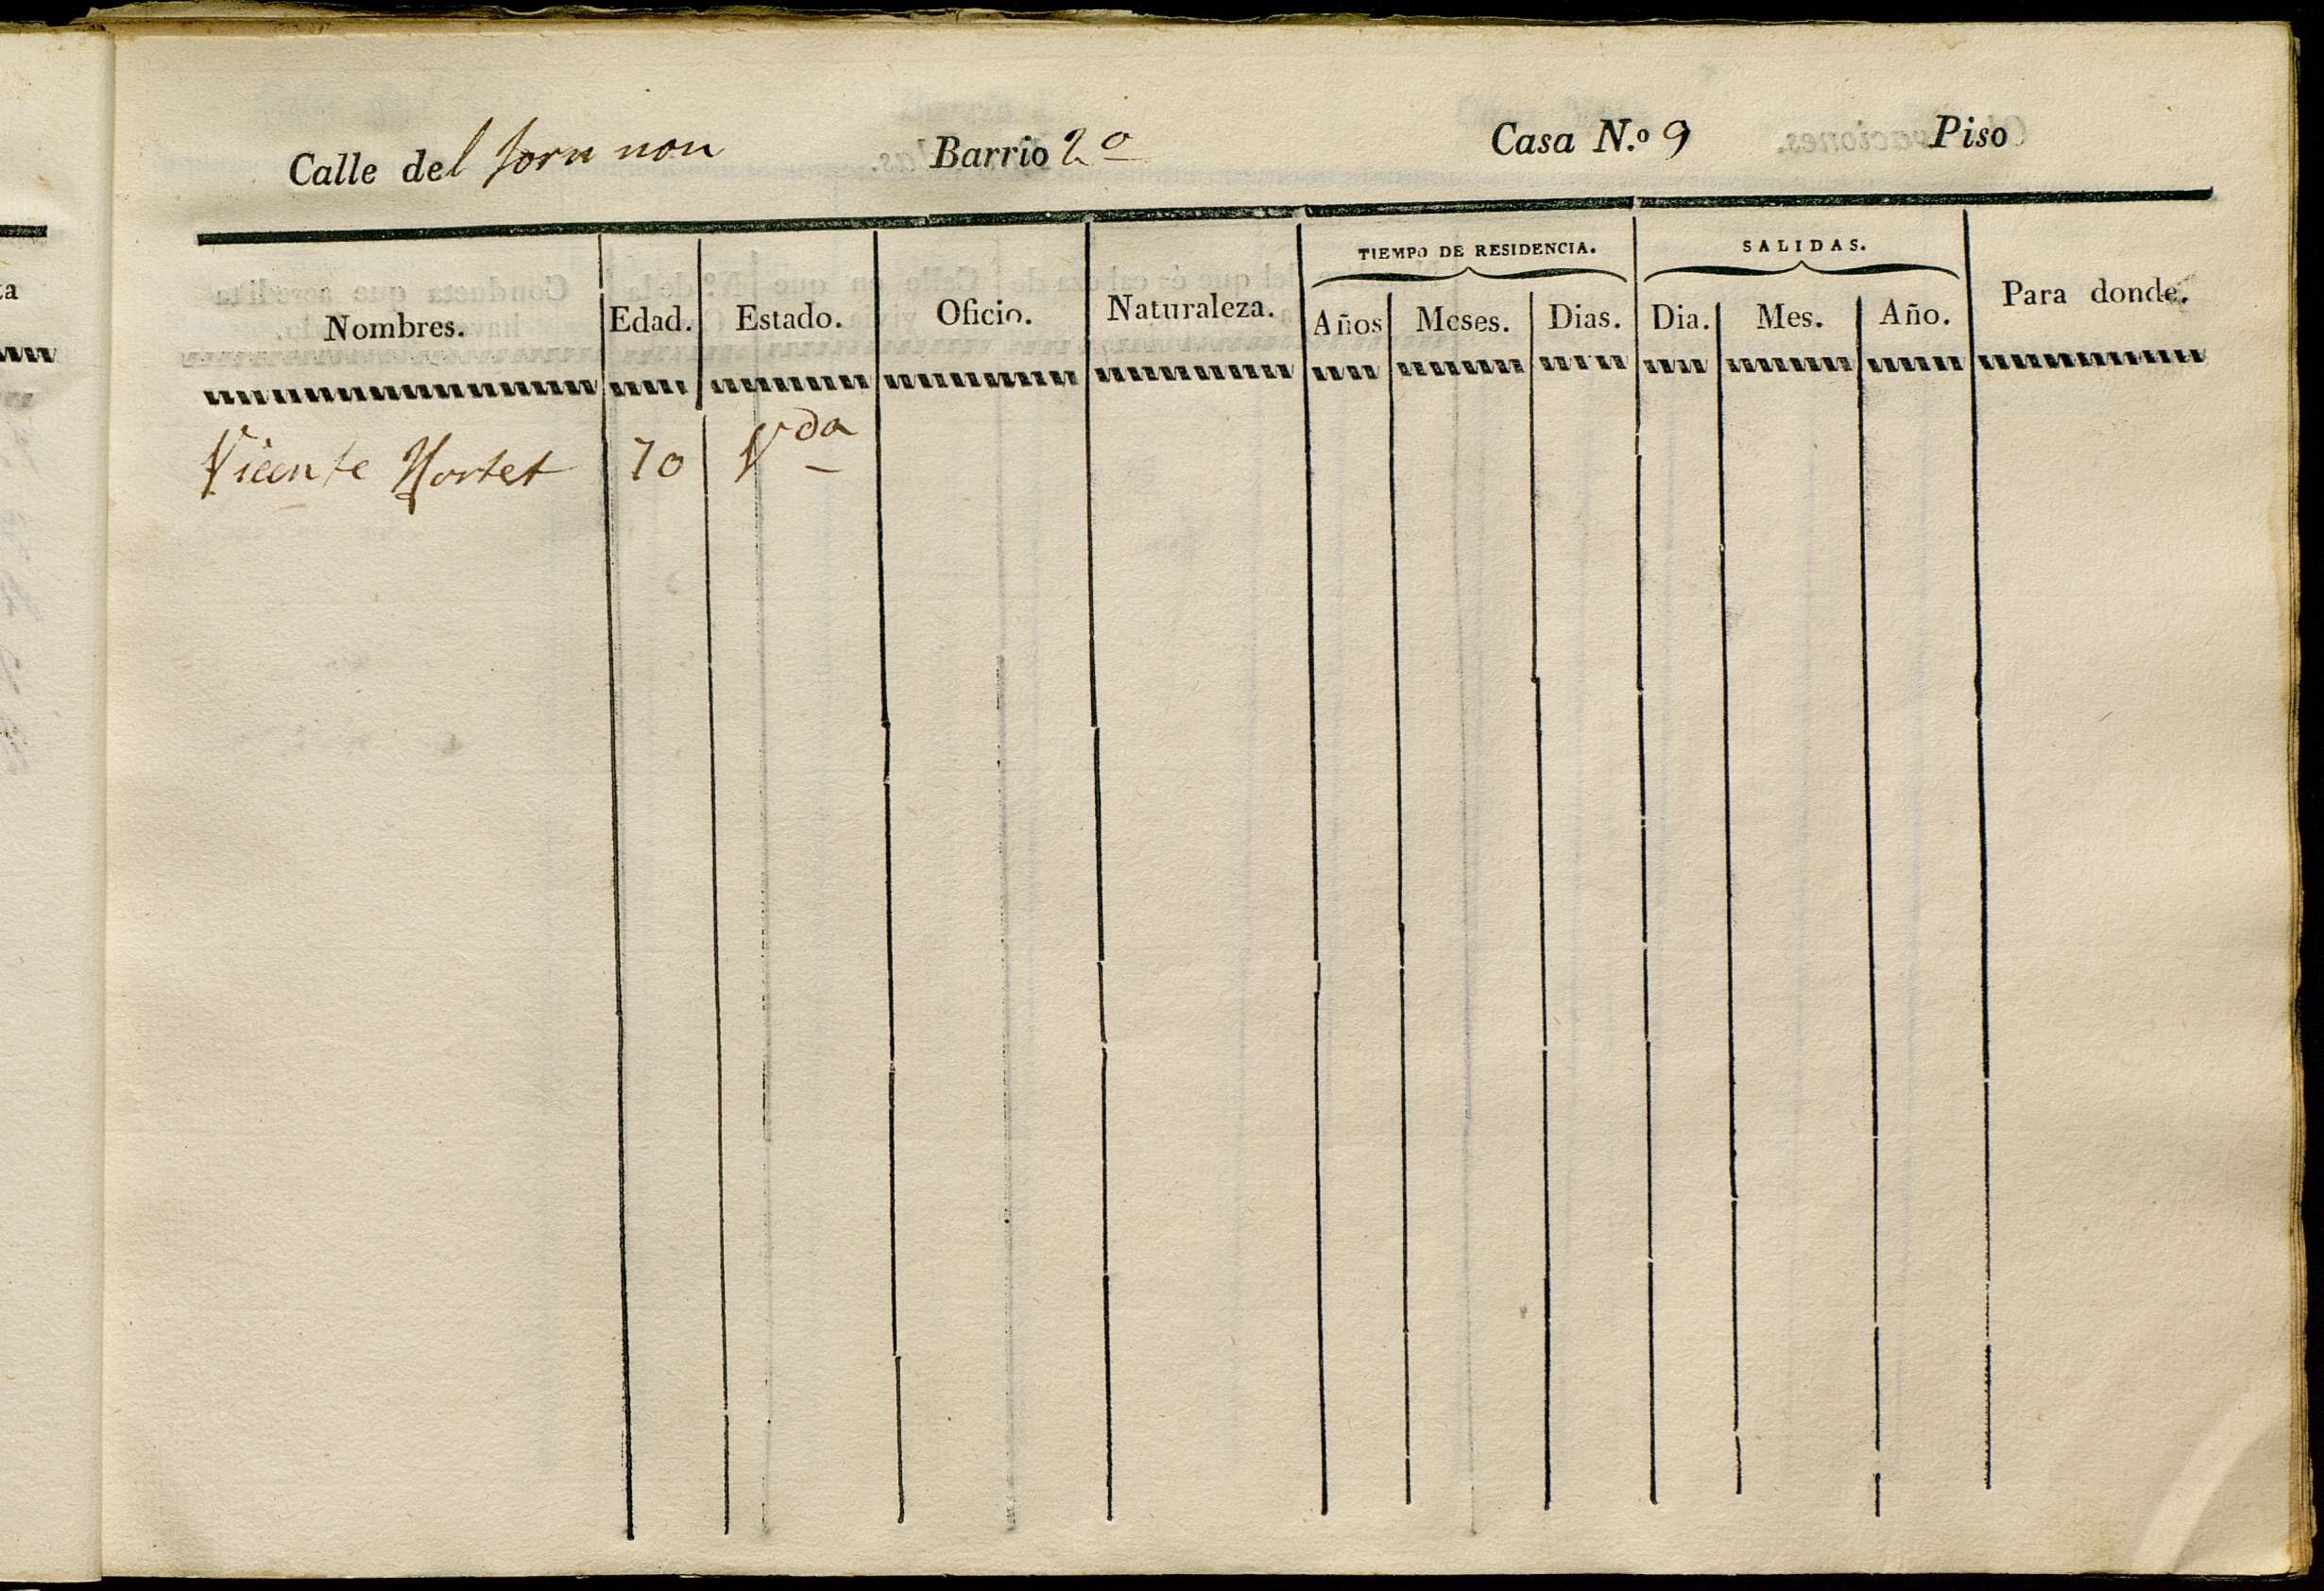 Calle del forn nou Barrio 2º Casa N.º 9 Piso
TIEMPO DE RESIDENCIA. SALIDAS.
Nombres. Edad. Estado. Oficio. Naturaleza. Años Meses. Dias. Dia. Mes. Año. Para donde.
Vicente Hortet 70 Vda